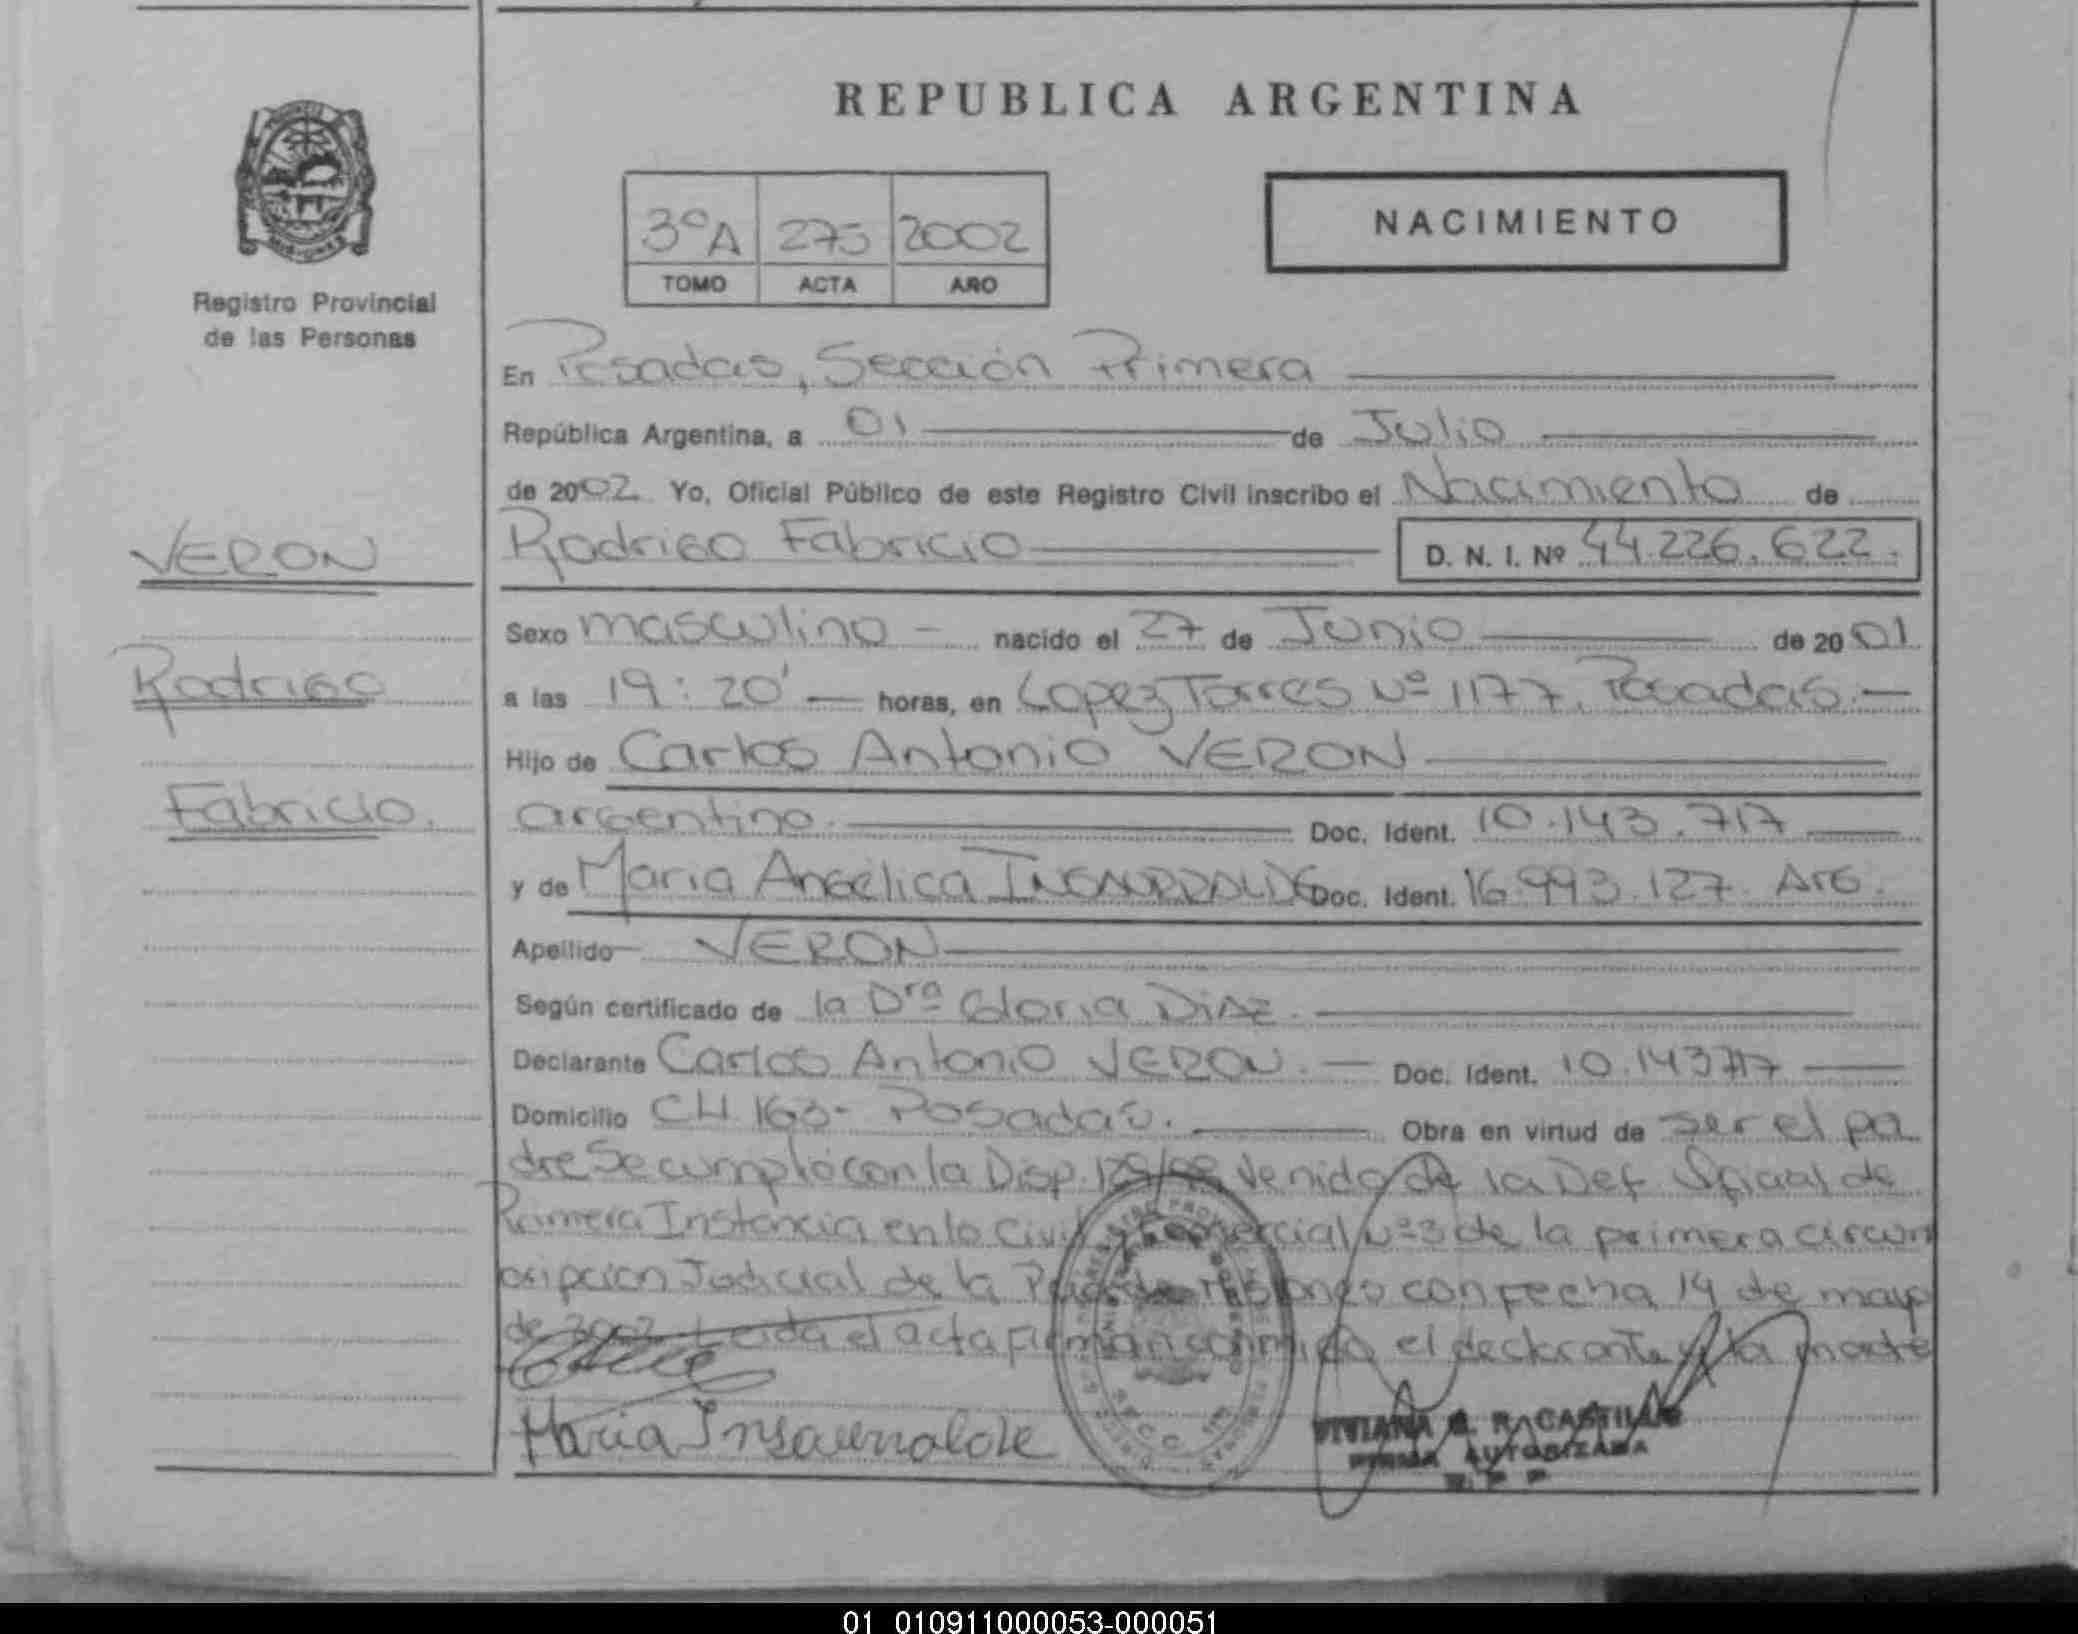 REPUBLICA ARGENTINA
NACIMIENTO
3ºA 275 2002
TOMO ACTA AÑO
Registro Provincial
de las Personas
En Posadas, Sección Primera
República Argentina, a 01 de Julio
de 2002 Yo, Oficial Público de este Registro Civil inscribo el Nacimiento de
VERON
Rodrigo Fabricio D. N. I. Nº 44.226.622.
Sexo masculino - nacido el 27 de Junio de 2001
Rodrigo
a las 19:20' horas, en Lopez Torres Nº 1177, Posadas.
Hijo de Carlos Antonio VERON
Fabricio.
argentino. Doc. Ident. 10.143.717
y de Maria Angélica INSAURRALDE Doc. Ident. 16.993.127 Arg.
Apellido VERON
Según certificado de la Drª Gloria DIAZ.
Declarante Carlos Antonio VERON. Doc. Ident. 10.143717
Domicilio CH. 163- Posadas. Obra en virtud de ser el pa
dre Se cumpló con la Disp. Venido de la Def. Oficial de
Primera Instancia en lo Civil y Comercial Nº3 de la primera circun
scripcion Judicial de la de Misiones con fecha 14 de mayo
de 2002 Leida el acta firman conmigo el declarante y la madre
Maria Insaurralde
VIVIANA R. CASTILLO
FIRMA AUTORIZADA
R. P. P.
01 010911000053-000051